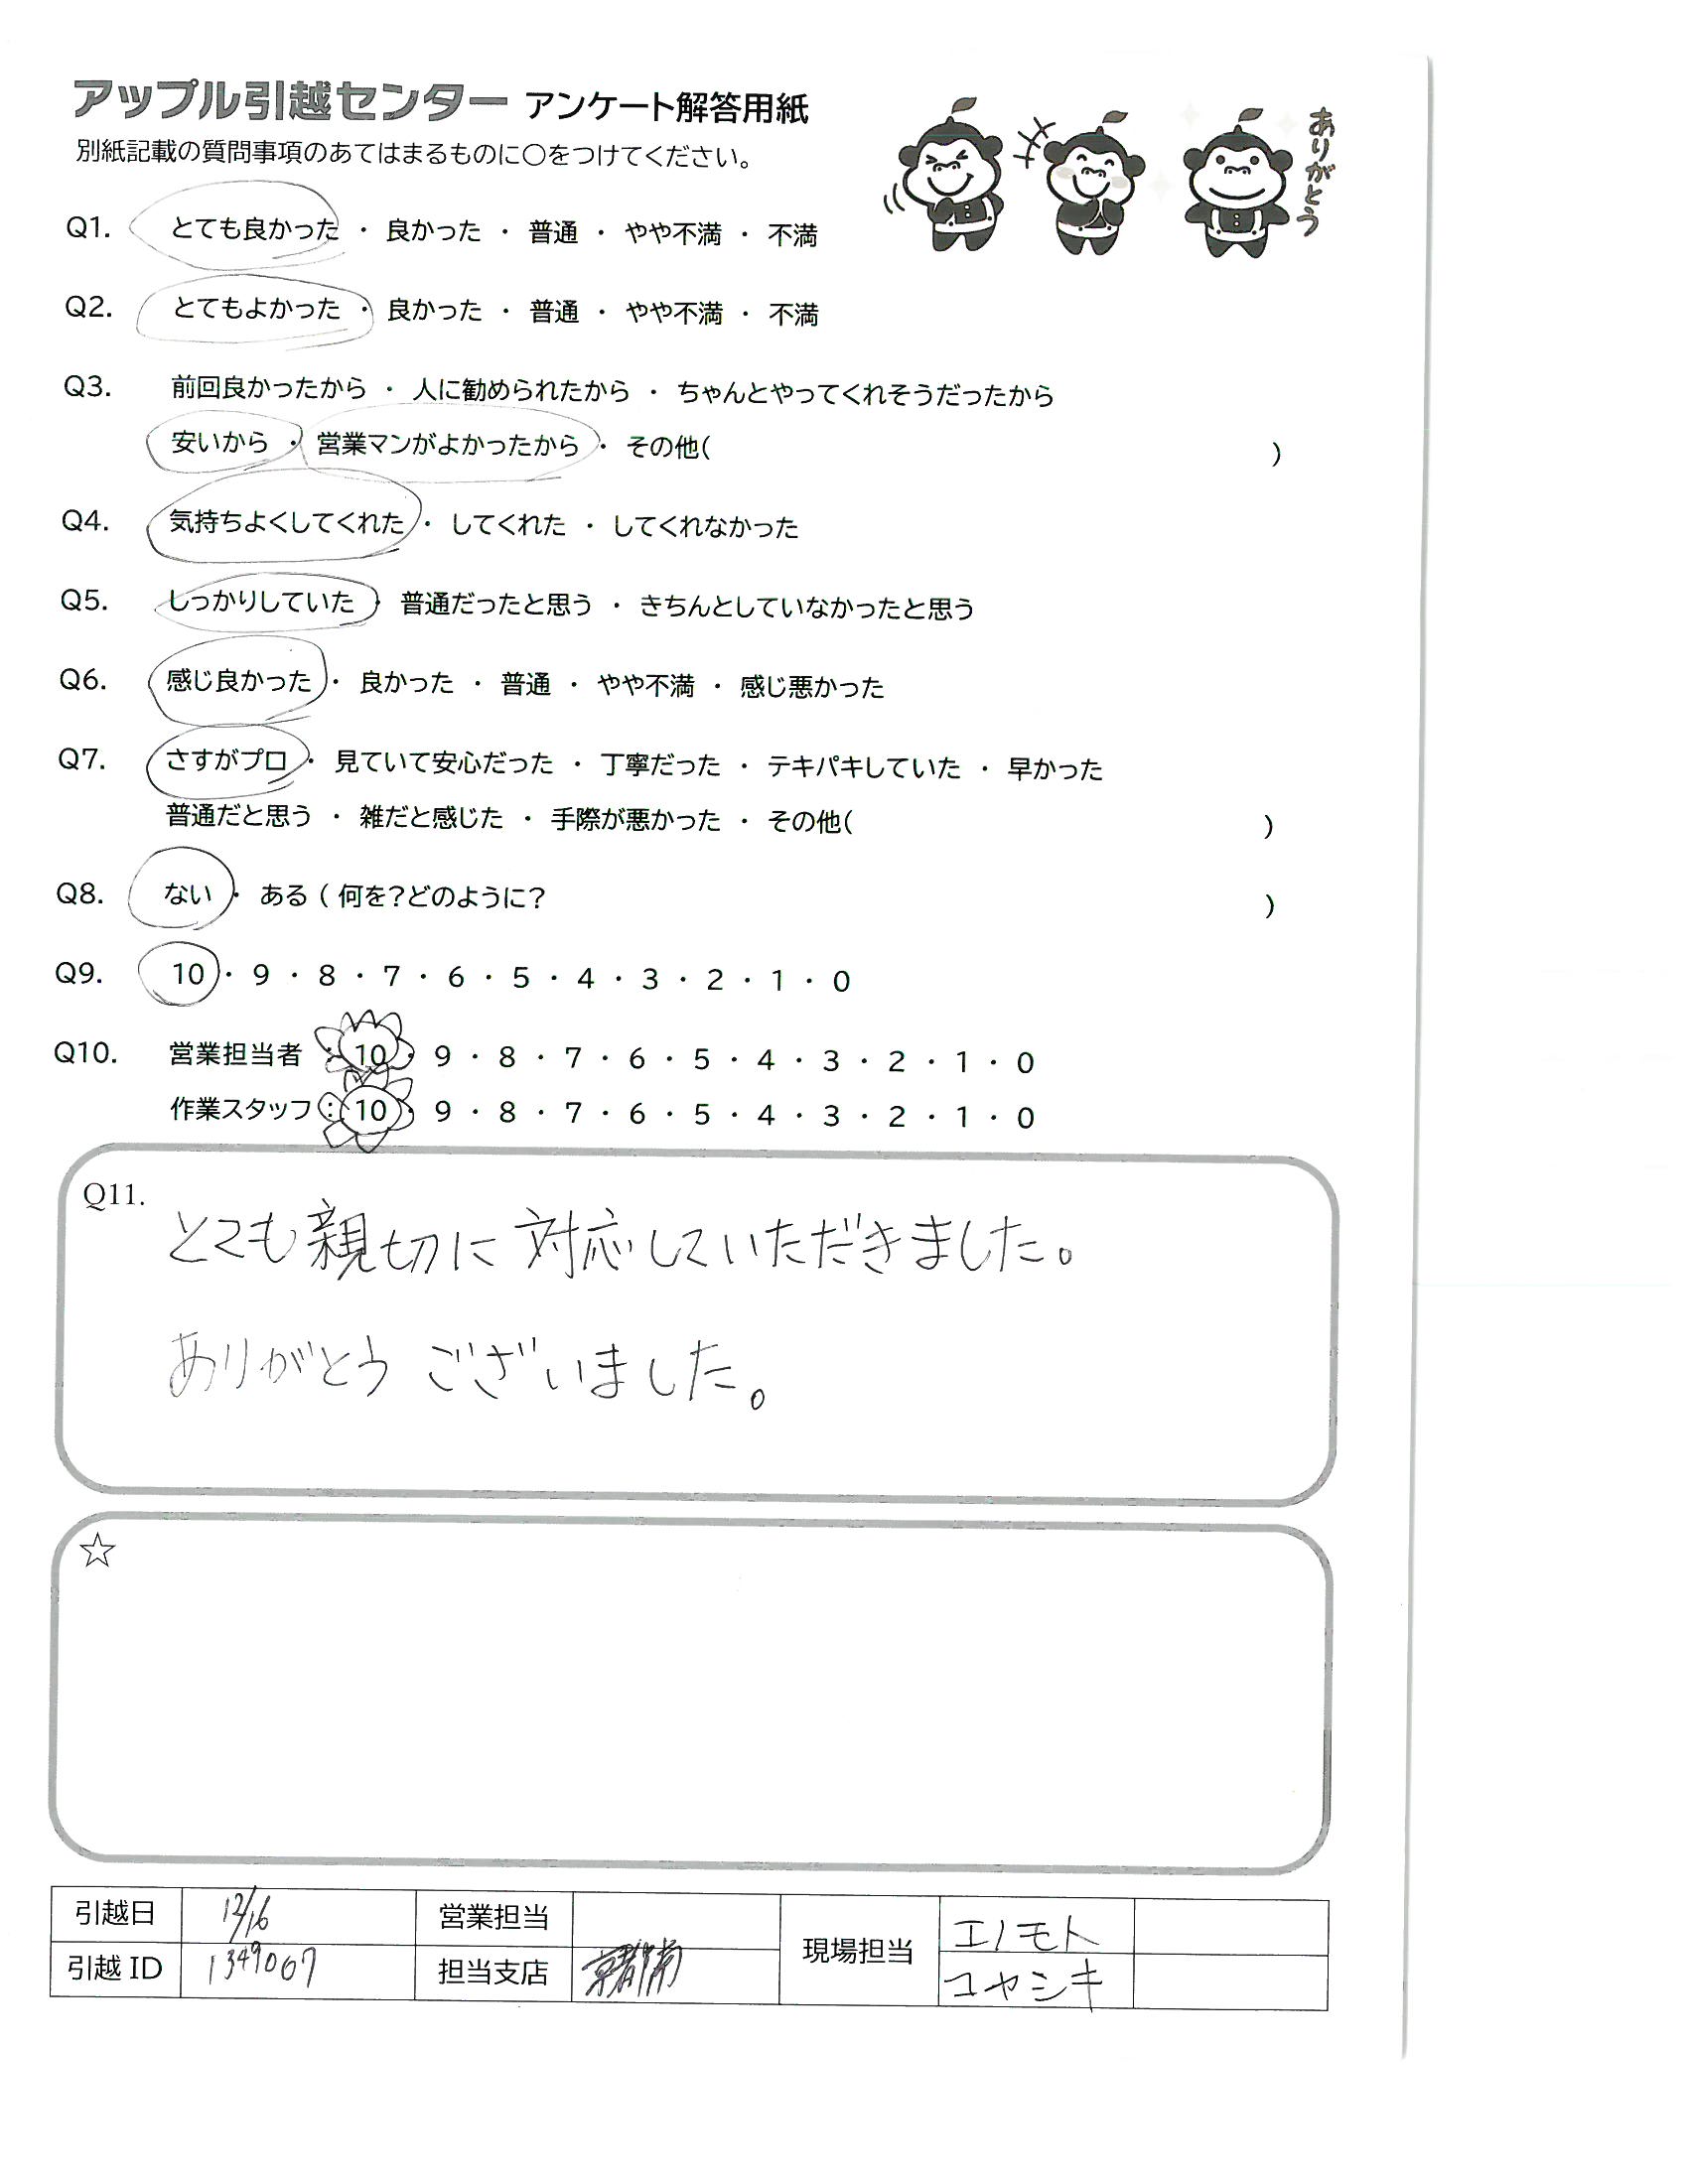 アップル引越センター アンケート解答用紙
別紙記載の質問事項のあてはまるものに○をつけてください。
ありがとう
Q1. とても良かった ・ 良かった ・ 普通 ・ やや不満 ・ 不満
Q2. とてもよかった ・ 良かった ・ 普通 ・ やや不満 ・ 不満
Q3. 前回良かったから ・ 人に勧められたから ・ ちゃんとやってくれそうだったから
安いから ・ 営業マンがよかったから ・ その他( )
Q4. 気持ちよくしてくれた ・ してくれた ・ してくれなかった
Q5. しっかりしていた ・ 普通だったと思う ・ きちんとしていなかったと思う
Q6. 感じ良かった ・ 良かった ・ 普通 ・ やや不満 ・ 感じ悪かった
Q7. さすがプロ ・ 見ていて安心だった ・ 丁寧だった ・ テキパキしていた ・ 早かった
普通だと思う ・ 雑だと感じた ・ 手際が悪かった ・ その他( )
Q8. ない ・ ある ( 何を?どのように? )
Q9. 10 ・ 9 ・ 8 ・ 7 ・ 6 ・ 5 ・ 4 ・ 3 ・ 2 ・ 1 ・ 0
Q10. 営業担当者 : 10 ・ 9 ・ 8 ・ 7 ・ 6 ・ 5 ・ 4 ・ 3 ・ 2 ・ 1 ・ 0
作業スタッフ : 10 ・ 9 ・ 8 ・ 7 ・ 6 ・ 5 ・ 4 ・ 3 ・ 2 ・ 1 ・ 0
Q11.
とても親切に対応していただきました。
ありがとうございました。
☆
引越日 12/16 営業担当 現場担当 エノモト
引越 ID 1349067 担当支店 京都南 コヤシキ